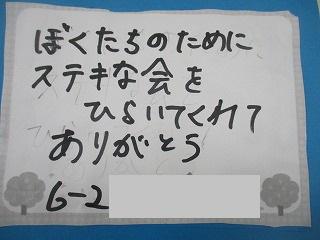 ぼくたちのために
ステキな会を
ひらいてくれて
ありがとう
6-2